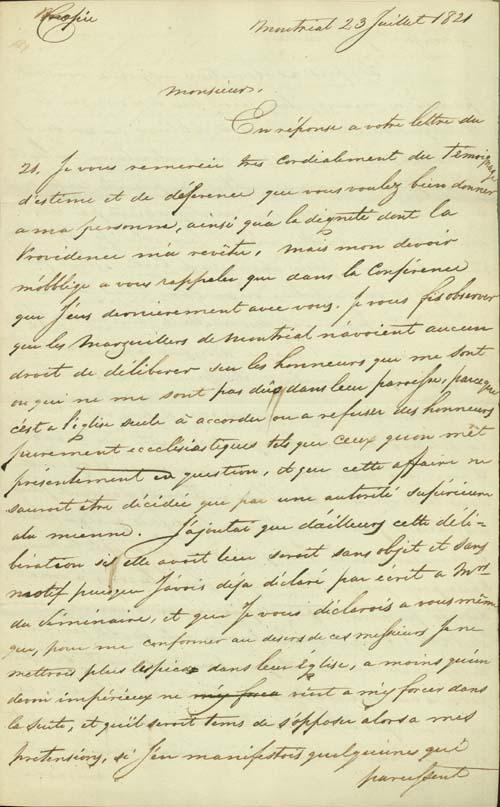 Copie
Montréal 23 Juillet 1821
Monsieur,
En réponse a votre lettre du
21. Je vous remercie très cordialement du Témoignage
d'estime et de déference que vous voulez bien donner
a ma personne, ainsi qu'a la dignité dont la
Providence m'a revêtu, mais mon devoir
m'obblige a vous rappeler que dans la Conférence
que J'eus dernierement avec vous. Je vous fis observer
que les Marguilliers de Montréal n'avoient aucun
droit de déliberer sur les honneurs qui me sont
ou qui ne me sont pas dûs dans leur paroisse, parceque
c'est a l'église seule à accorder ou a refuser des honneurs
purement ecclésiastiques tels que ceux qu'on mêt
présentement en question, et que cette affaire ne
sauroit être décidée que par une autorité supérieure
a la mienne. J'ajoutai que d'ailleurs cette déli-
bération si elle avoit lieu seroit sans objet et sans
motif puisque J'avois déja déclaré par écrit a Mrs
du Séminaire, et que Je vous déclarois a vous même
que, pour me conformer au desirs de ces messieurs Je ne
mettrois plus les pieds dans leur Église, a moins qu'un
devoir impérieux ne m'y força vint a m'y forcer dans
la suite, et qu'il seroit tems de s'opposer alors a mes
pretensions, si J'en manifestois quelqu'unes qui
parussent